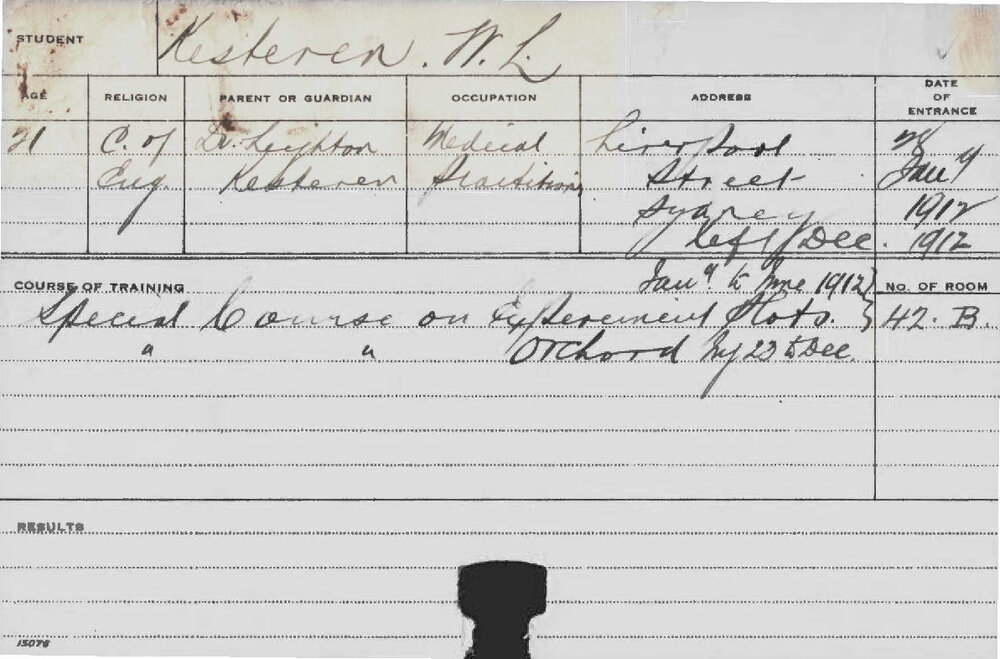 STUDENT Kesteren. W. L.
AGE RELIGION PARENT OR GUARDIAN OCCUPATION ADDRESS DATE OF ENTRANCE
21 C. of Dr. Leighton Medical Liverpool 28
Eng. Kesteren Practitioner Street Jany
Sydney 1912
left Dec. 1912
Jany. to June 1912}
COURSE OF TRAINING No. OF ROOM
Special Course on Experiment Plots. } 42. B.
" " Orchard 23 to Dec.
RESULTS
15076